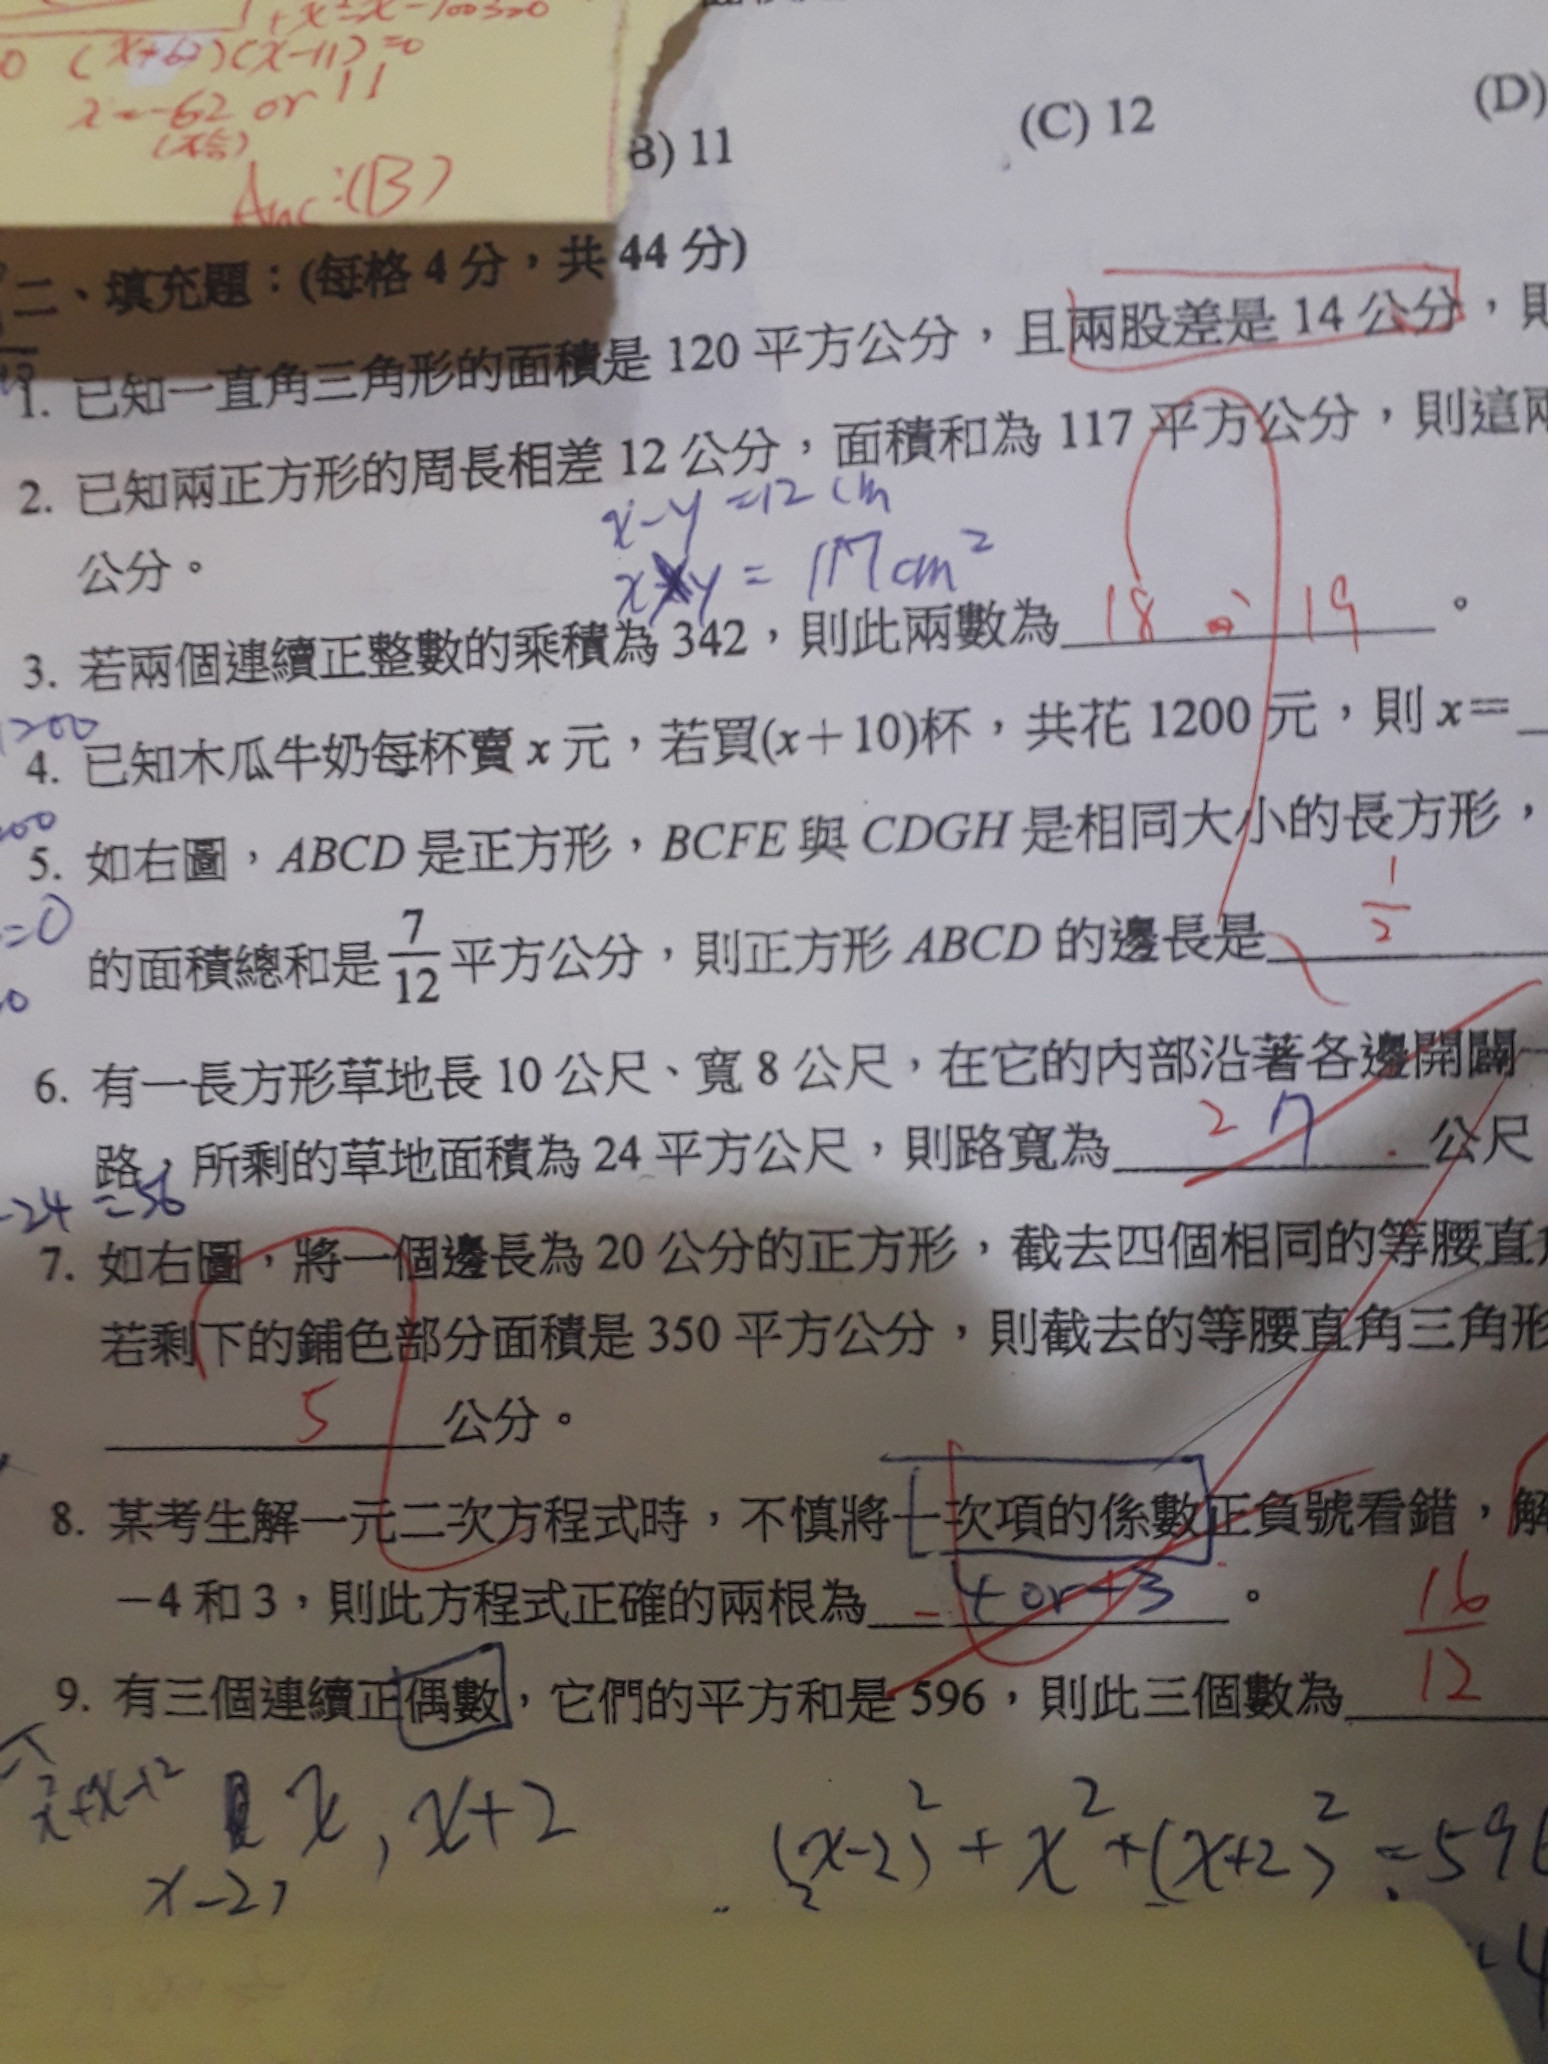 +x²-x-700=0
(x+62)(x-11)=0
x=-62 or 11
(不合)
Ans:(B)
B) 11 (C) 12 (D)
二、填充題：(每格 4 分，共 44 分)
1. 已知一直角三角形的面積是 120 平方公分，且兩股差是 14 公分，則
2. 已知兩正方形的周長相差 12 公分，面積和為 117 平方公分，則這兩
x-y=12 cm
公分。
xy= 117 cm²
3. 若兩個連續正整數的乘積為 342，則此兩數為 18 19 。
1200
4. 已知木瓜牛奶每杯賣 x 元，若買(x＋10)杯，共花 1200 元，則 x＝
5. 如右圖，ABCD 是正方形，BCFE 與 CDGH 是相同大小的長方形，
=0
的面積總和是 7/12 平方公分，則正方形 ABCD 的邊長是 1/2
6. 有一長方形草地長 10 公尺、寬 8 公尺，在它的內部沿著各邊開闢一
路，所剩的草地面積為 24 平方公尺，則路寬為 2 7 公尺
-24 =56
7. 如右圖，將一個邊長為 20 公分的正方形，截去四個相同的等腰直角
若剩下的鋪色部分面積是 350 平方公分，則截去的等腰直角三角形
5 公分。
8. 某考生解一元二次方程式時，不慎將一次項的係數正負號看錯，解
－4 和 3，則此方程式正確的兩根為 - 4 or +3 。
16/12
9. 有三個連續正偶數，它們的平方和是 596，則此三個數為
x²+x-12 x , x+2
x-2,
(x-2)²+x²+(x+2)²=596